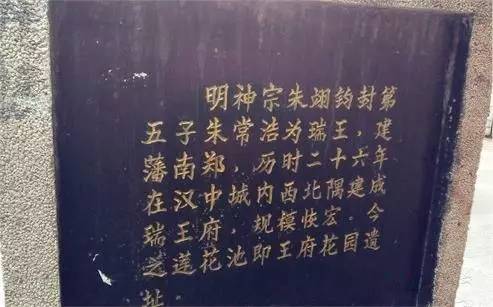 明神宗朱翊钧封第
五子朱常浩为瑞王，建
藩南郑，历时二十六年
在汉中城内西北隅建成
瑞王府，规模恢宏。今
之莲花池即王府花园遗
址。